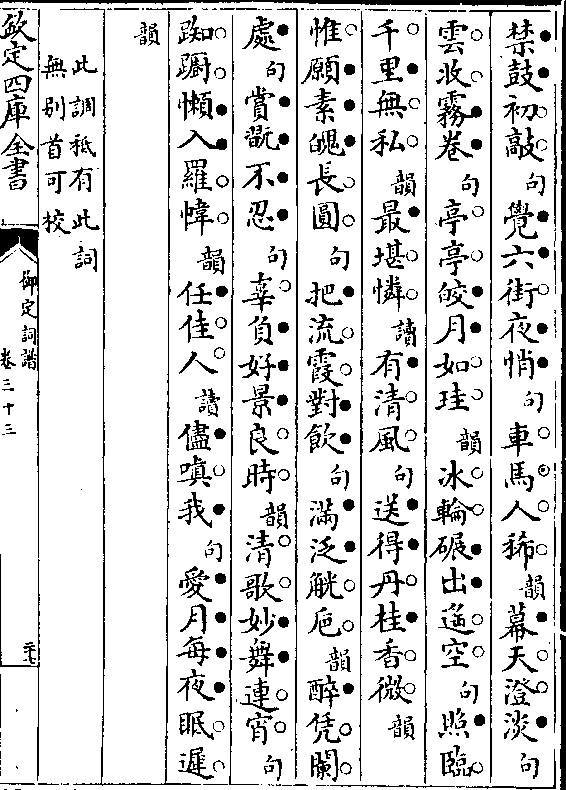 禁鼓初敲句覺六街夜悄句車馬人稀韻幕天澄淡句
雲收霧卷句亭亭皎月如珪韻冰輪碾出遥空句照臨
千里無私韻最堪憐讀有清風句送得丹桂香微韻
惟願素魄長圓句把流霞對飲句滿泛觥巵韻醉凭闌
處句賞翫不忍句辜負好景良時韻清歌妙舞連宵句
踟躕懶入羅幃韻任佳人讀儘嗔我句愛月每夜眠遲
韻
此調祗有此詞
無别首可校
欽定四庫全書
御定詞譜
卷三十三